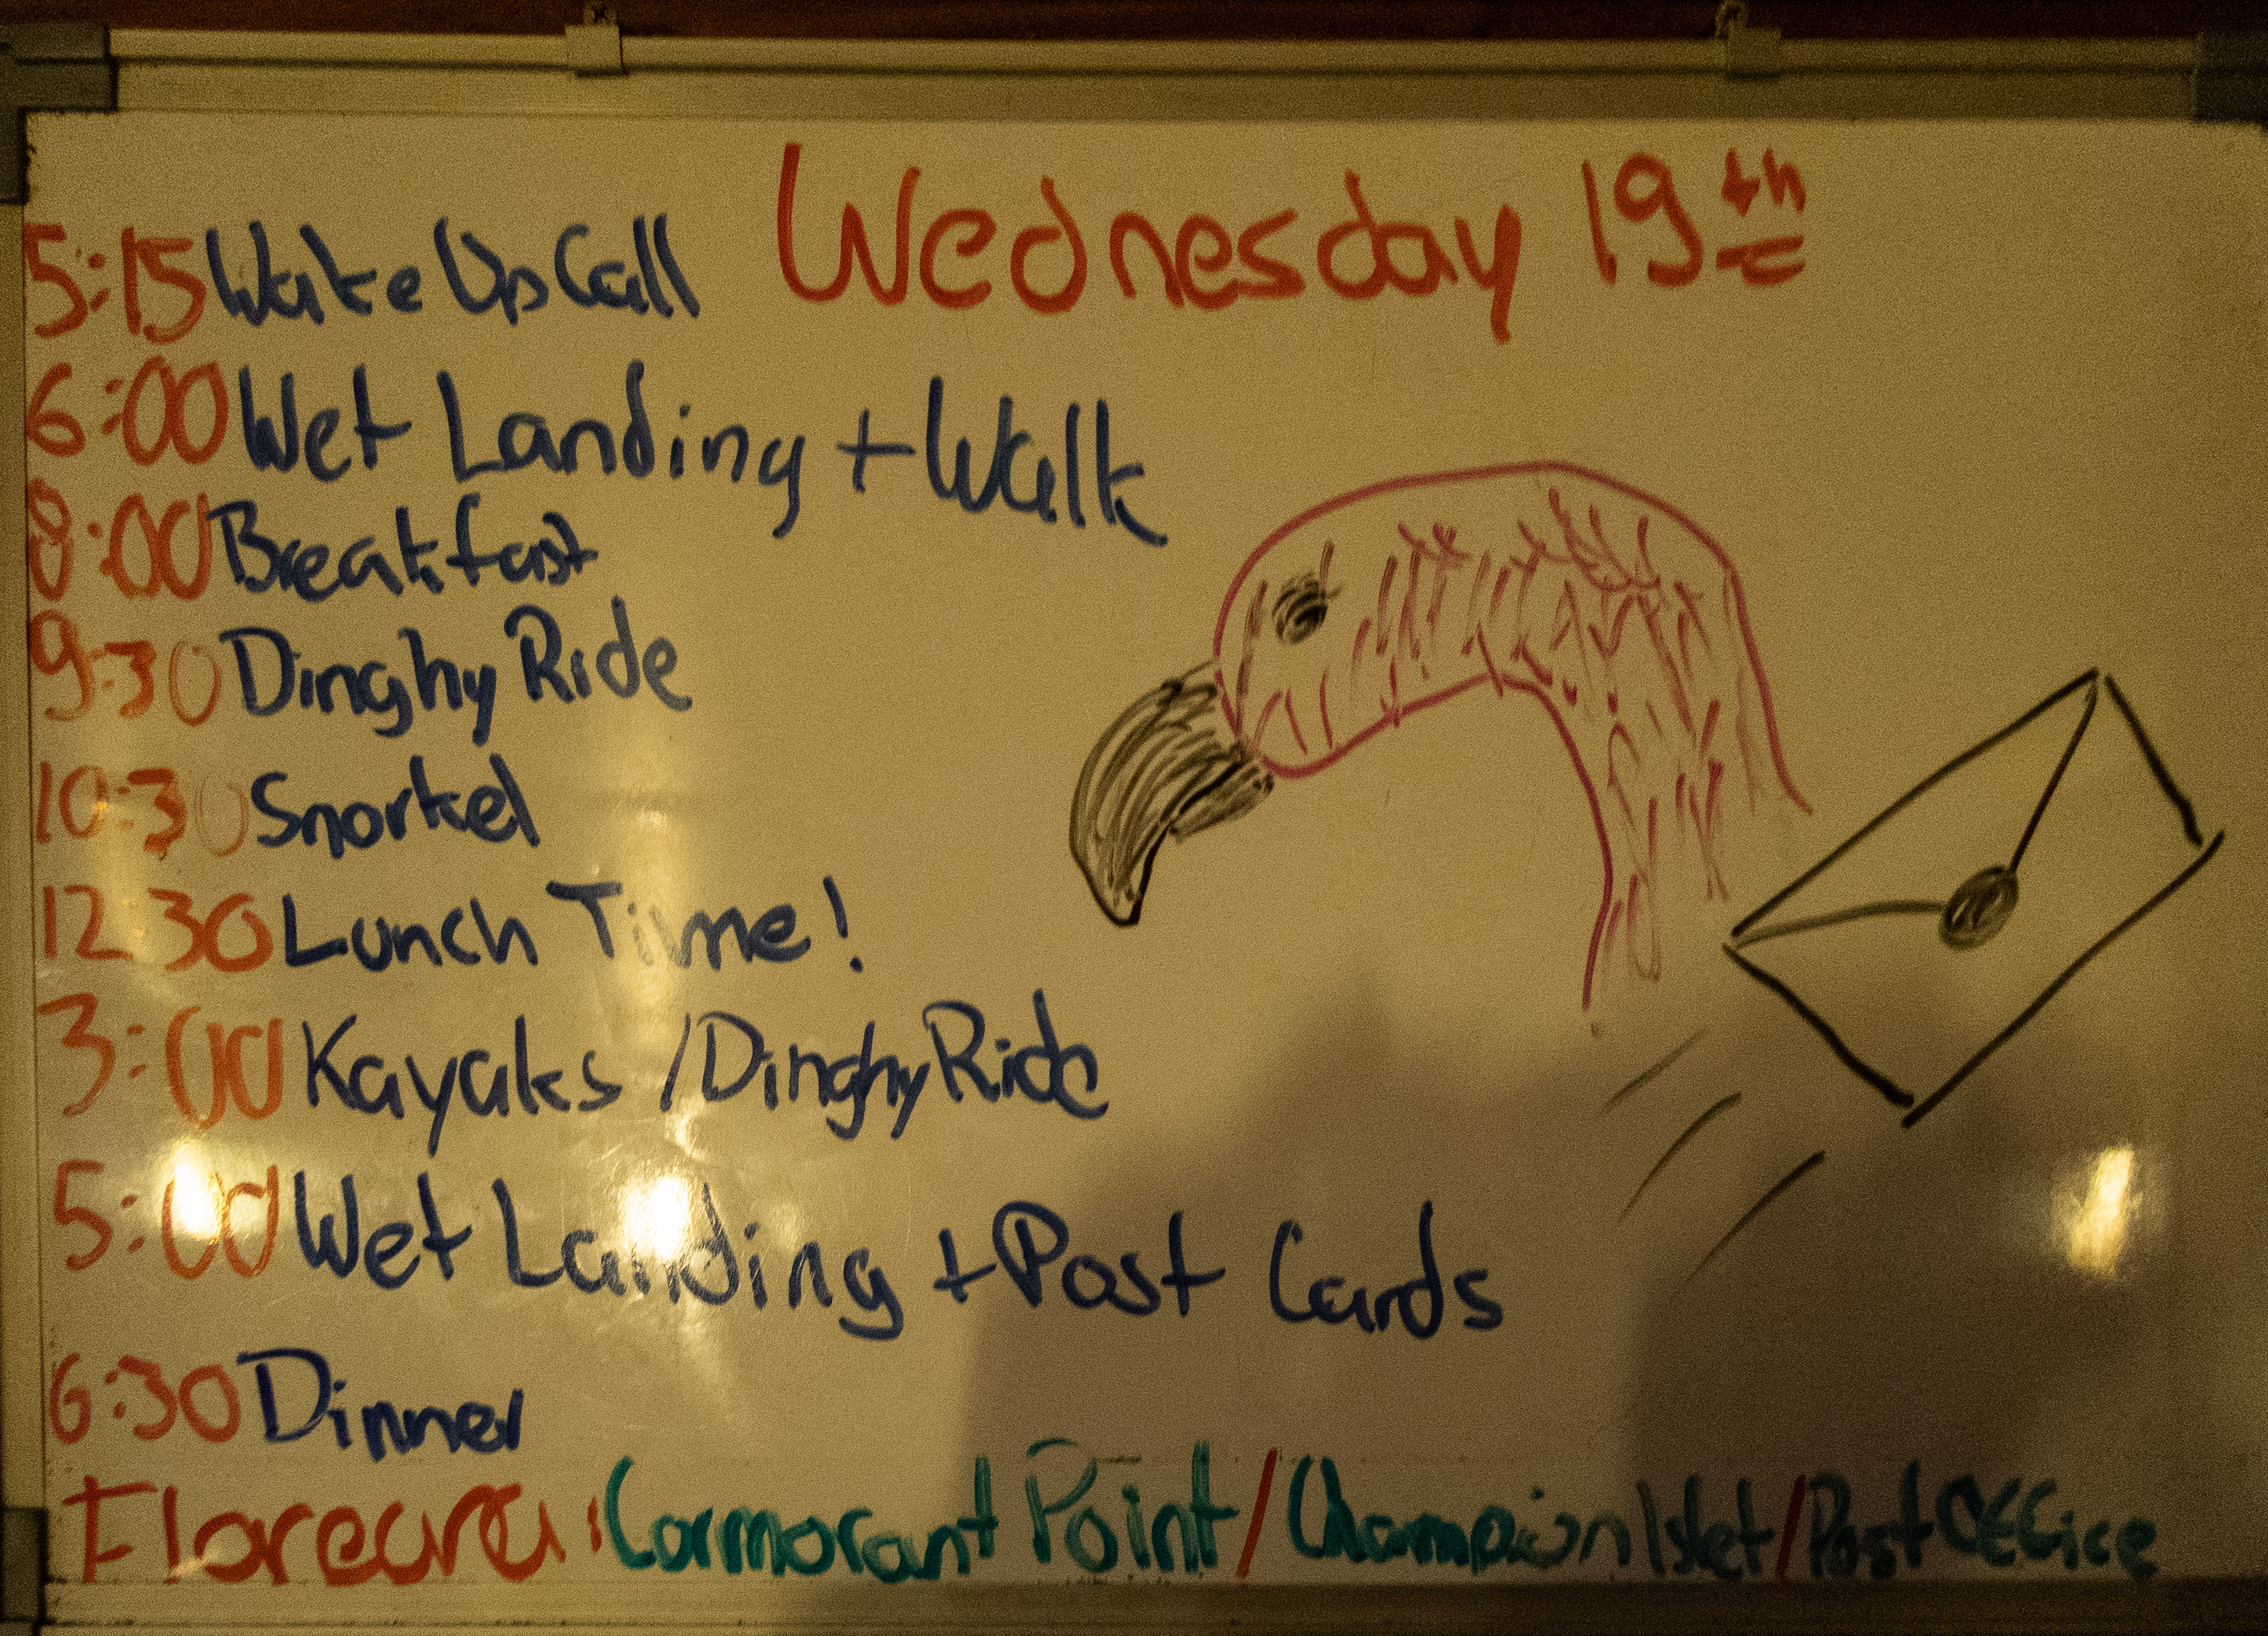 Wednesday 19th
5:15 Wake Up Call
6:00 Wet Landing + Walk
8:00 Breakfast
9:30 Dinghy Ride
10:30 Snorkel
12:30 Lunch Time!
3:00 Kayaks / Dinghy Ride
5:00 Wet Landing + Post Cards
6:30 Dinner
Floreana: Cormorant Point / Champion Islet / Post Office